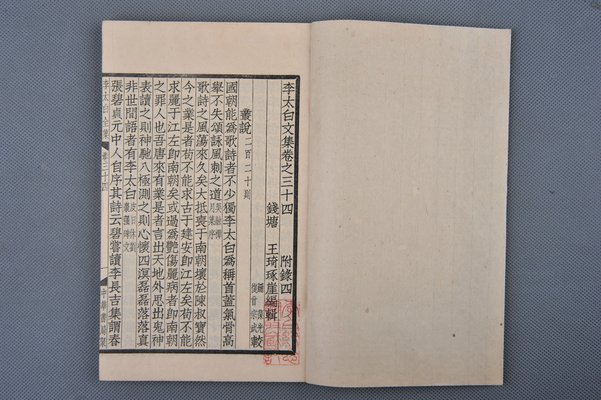 李太白文集卷之三十四　附錄四
錢塘　王琦琢崖編輯
較
叢說二百二十則
國朝能爲歌詩者不少獨李太白爲稱首蓋氣骨高
舉不失頌詠風刺之道
歌詩之風蕩來久矣大抵喪于南朝壞於陳叔寶然
今之業是者苟不能求古于建安卽江左矣苟不能
求麗于江左卽南朝矣或過爲艷傷麗病者卽南朝
之罪人也吾唐來有業是者言出天地外思出鬼神
表讀之則神馳八極測之則心懷四溟磊磊落落眞
非世間語者有李太白
張碧貞元中人自序其詩云碧嘗讀李長吉集謂春
李太白全集　卷三十四